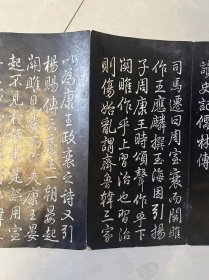 讀史記儒林傳
司馬遷曰周室衰而關雎
作王應麟撰玉海因引揚
子周康王時頌聲作乎下
關雎作乎上習治也習治
則傷始亂謂齊魯韓三家
以為康王政衰之詩又引
楊賜傳云康王一朝晏起
關雎見幾而作夫康王晏
起不見於誤用宣